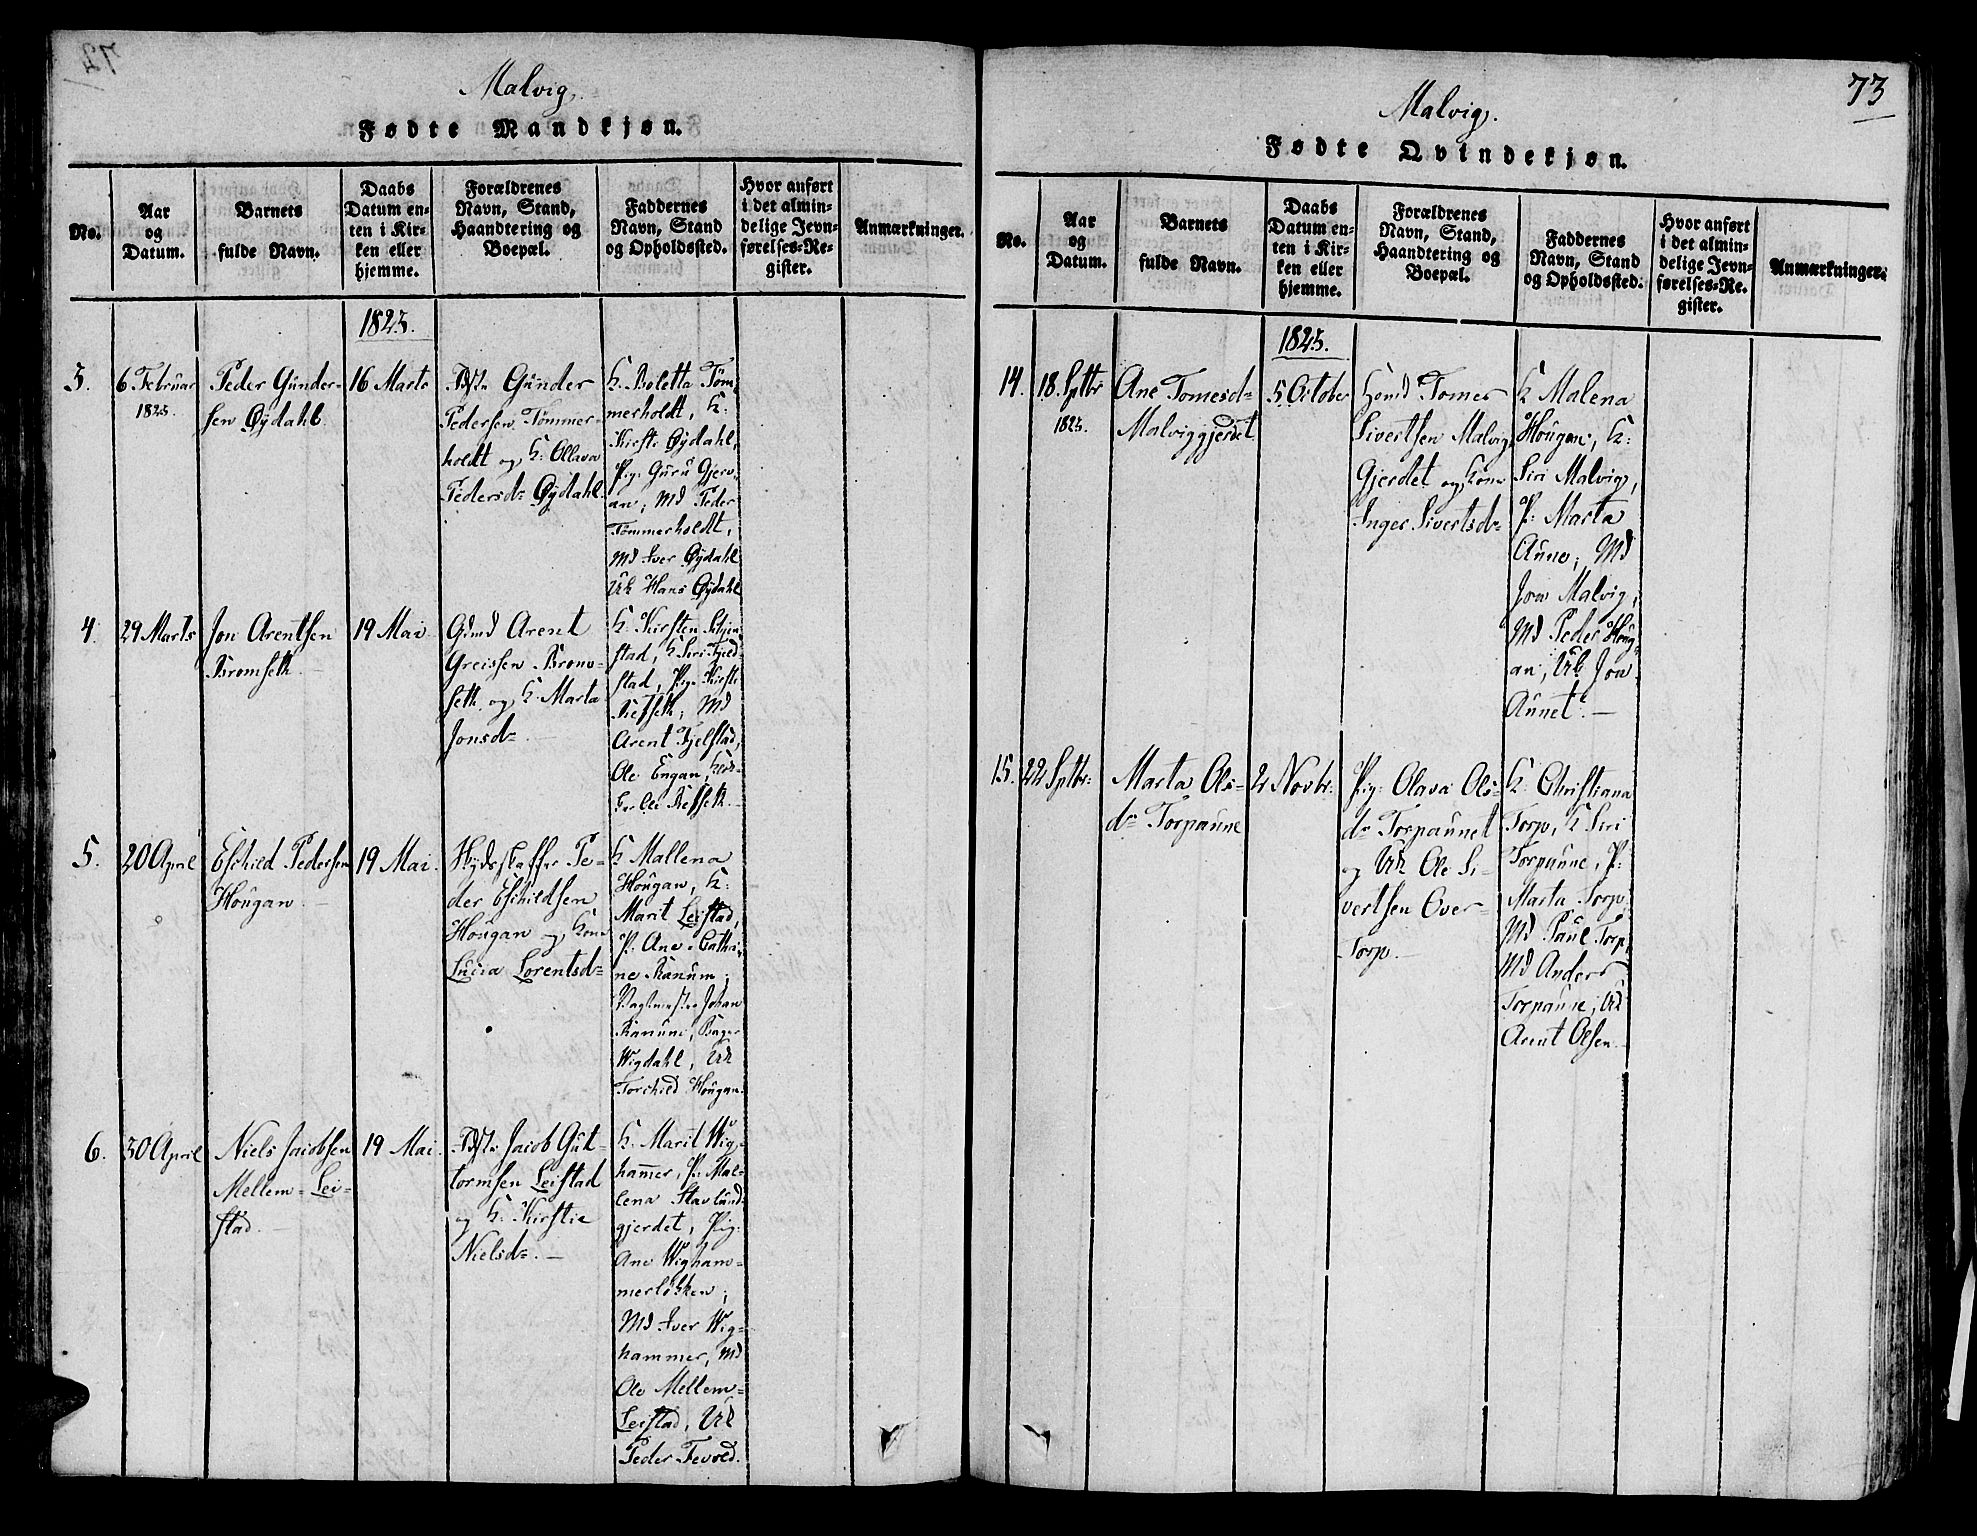 Malvig.
Fødte Mandkjøn.
No.
Aar
og
Datum.
Barnets
fulde Navn.
Daabs
Datum en-
ten i Kir-
ken eller
hjemme.
Forældrenes
Navn, Stand,
Haandtering og
Boepæl.
Faddernes
Navn, Stand
og Opholdssted.
Hvor anført
i det almin-
delige Jevn-
førelses-Re-
gister.
Anmærkninger.
1823.
3.
6 Februar
1823.
Peder Günder-
sen Øÿdahl.
16 Marts
Günder
Pedersen Tømmer-
holdt og K: Ollava
Pedersd= Øÿdahl.
K. Boletta Tøm-
merholdt, K:
Kirsti Øÿdahl,
Pig: Gürü Gjerv-
an; Md Peder
Tømmerholdt,
Md Iver Øÿdahl
Uk Hans Øÿdahl
4.
29 Marts
Jon Arentsen
Bromseth.
19 Mai
Gdmd Arent
Greissen Brom-
seth og K: Marta
Jonsd=
K: Kirsten
stad, K Siri Fjeld-
stad, Pig: Kirsti
Md
Arent Fjelstad,
Ole Engan,
5.
20 April
Eschild Pedersen
Hoügan.
19 Mai.
Pe-
der Eschildsen
Hoügan og Kone
Lucia Lorentsd=
K: Mallena
Hoügan, K:
Marit Leistad,
P: Ane Cathri-
ne Ranum;
Johan
Ranum,
Wigdahl, Uk
Torchild Hoügan.
6.
30 April
Niels Jacobsen
Mellem-Lei-
stad.
19 Mai.
Jacob Güt-
tormsen Leistad
og K: Kirstie
Nielsd=.
K. Marit Wig-
hammer, P: Mal-
lena Stavlünd-
gjerdet, Pig:
Ane Wigham-
merløkken;
Md Iver Wig-
hammer, Md
Ole Mellem-
Leistad, Uk
Peder Fevold.
73
Malvig.
Fødte Qvindekjøn.
No.
Aar
og
Datum.
Barnets
fulde Navn.
Daabs
Datum en-
ten i Kir-
ken eller
hjemme.
Forældrenes
Navn, Stand,
Haandtering og
Boepæl.
Faddernes
Navn, Stand
og Opholdssted.
Hvor anført
i det almin-
delige Jevn-
førelses-Re-
gister.
Anmærkninger.
1823.
14.
18. Sptbr
1823.
Ane Tomesd=
Malviggjerdet
5 October
Huusmd Tomes
Sivertsen Malvig
Gjerdet og Kone
Inger Sivertsd=
K Malena
Hoügan, K:
Siri Malvig,
P: Marta
Aune; Md
Jon Malvig,
Md Peder Hoüg-
an, Uk Jon
Aunet.
15.
22 Sptbr:
Marta Ols-
d= Torpaüne
2 Novbr:
Pig: Olava Ols-
d= Torpaünet
og Uk Ole Si-
vertsen Over-
Torp.
K: Christiana
Torp, K Siri
Torpaüne, P:
Marta Torp
Md Paül Torp,
Md Anders
Torpaüne, Uk
Arent Olsen